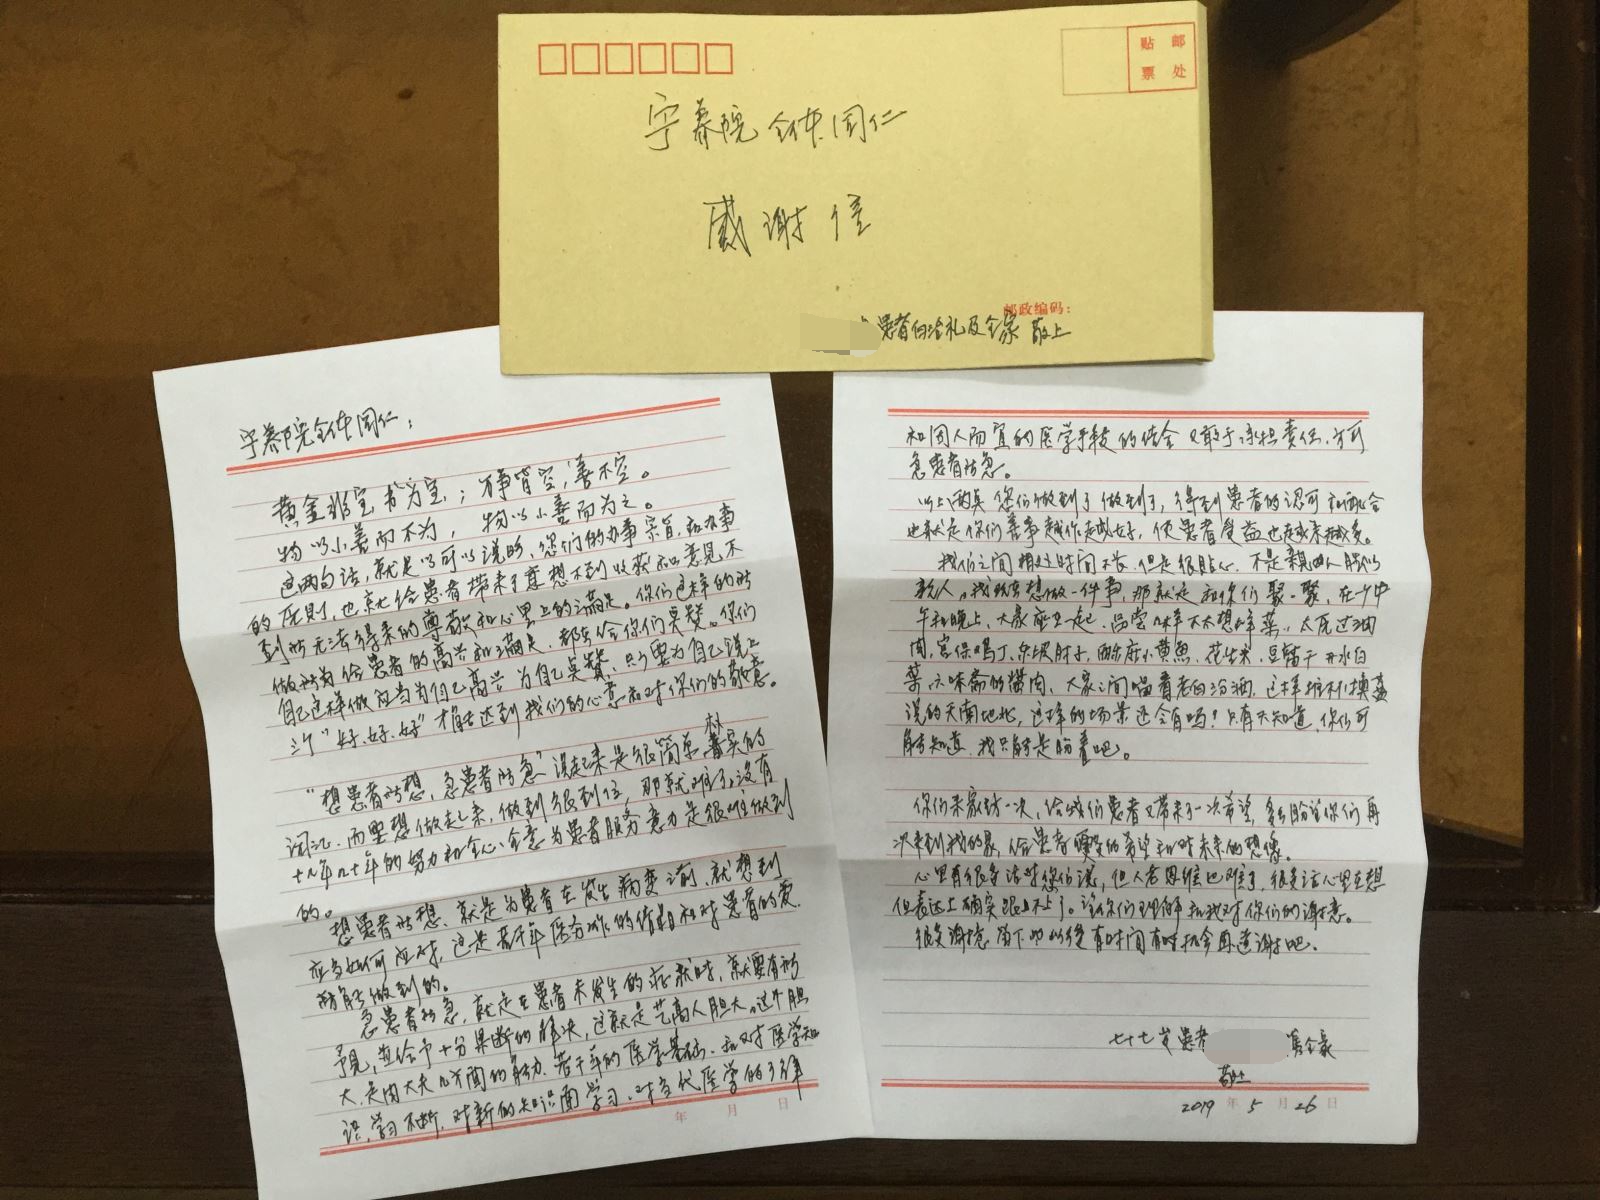 贴 邮
票 处
宁养院全体同仁
感谢信
邮政编码:
患者白治礼及全家 敬上
宁养院全体同仁:
黄金非宝书为宝,;万事皆空,善不空。
物以小善而不为,物以小善而为之。
这两句话,就是以可以说明,您们的办事宗旨,和办事
的原则,也就给患者带来了意想不到收获和意见,不
到所无法得来的尊敬和心里上的满足。你们这样的所
做所为给患者的高兴和满足,都会给你们点赞。你们
自己这样做应当为自己高兴 为自己点赞,只要为自己说上
三个"好、好、好"才能达到我们的心意和对你们的敬意。
"想患者所想,急患者所急"说起来是很简单,朴实的
词汇,而要想做起来,做到很到位,那就难了,没有
十几年几十年的努力和全心全意为患者服务意力是很难做到
的。
想患者所想,就是为患者在发生病变前,就想到
应当如何应对,这是若干年医务工作的借鉴和对患者的爱,
才能做到的。
急患者所急,就是在患者未发生的症状时,就要有所
予见,并给予十分果断的解决,这就是艺高人胆大。这个胆
大,是内大夫几方面的能力,若干年的医学基础,和对医学知
识,学习不断,对新的知识面学习,对当代医学的了解
年 月 日
和因人而宜的医学手段的结合又敢于承担责任,方可
急患者所急。
以上两点 您们做到了做到了,得到患者的认可和配合
也就是你们善事越作越好,使患者受益也越来越多。
我们之间相处时间不长,但是很贴心,不是亲人胜似
亲人。我就在想做一件事,那就是和你们聚一聚,在一个中
午和晚上,大家座在一起,品尝几样不太想样菜,太原过油
肉,宫保鸡丁,东坡肘子,酥小黄鱼,花生米,豆腐干 开水白
菜,六味斋的酱肉,大家之间喝着老白汾酒,这样推杯换盏
说的天南地北,这样的场景还会有吗?只有天知道,你们可
能知道,我只能是盼着吧。
你们来家访一次,给我们患者又带来了一次希望,多么盼望你们再
次来到我的家,给患者更多的希望和对未来的想像。
心里有很多话对您们说,但人老思维也难了,很多话心里在想
但表达上确实跟不上了。请你们理解和我对你们的谢意。
很多谢意留下的以后有时间有时机会再道谢吧。
七十七岁患者
敬上
2019 年 5 月 26 日